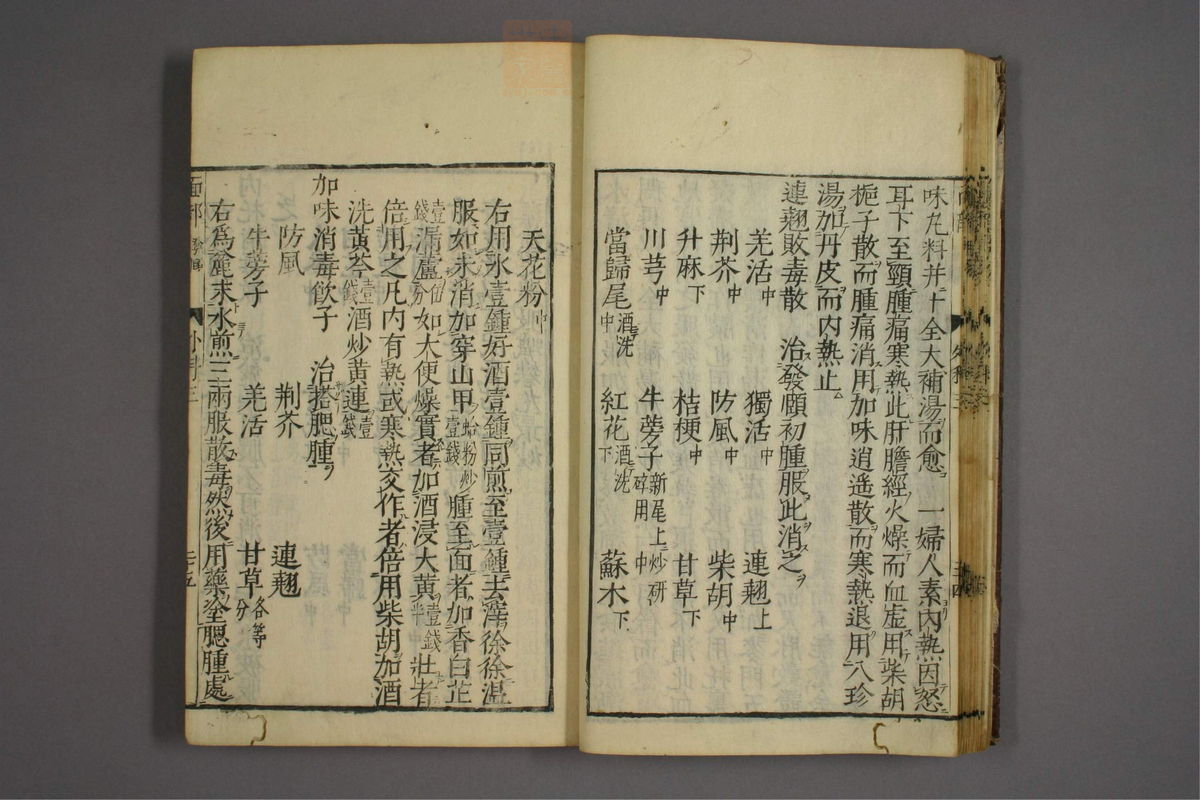 味丸料并十全大補湯而愈 一婦人素內熱因怒
耳下至頸腫痛寒熱此肝膽經火燥而血虛用柴胡
梔子散而腫痛消用加味逍遙散而寒熱退用八珍
湯加丹皮而內熱止
連翹敗毒散 治發頤初腫服此消之
羌活中 獨活中 連翹上
荊芥中 防風中 柴胡中
升麻下 桔梗中 甘草下
川芎中 牛蒡子新尾上炒研碎用中
當歸尾酒洗中 紅花酒洗下 蘇木下
天花粉中
右用水壹鍾好酒壹鍾同煎至壹鍾去滓徐徐溫
服如未消加穿山甲蛤粉炒壹錢腫至面者加香白芷
壹錢漏蘆伍分如大便燥實者加酒浸大黃壹錢半壯者
倍用之凡內有熱或寒熱交作者倍用柴胡加酒
洗黃芩壹錢酒炒黃連壹錢
加味消毒飲子 治搭腮腫
防風 荊芥 連翹
牛蒡子 羌活 甘草各等分
右為麄末水煎三兩服散毒然後用藥塗腮腫處